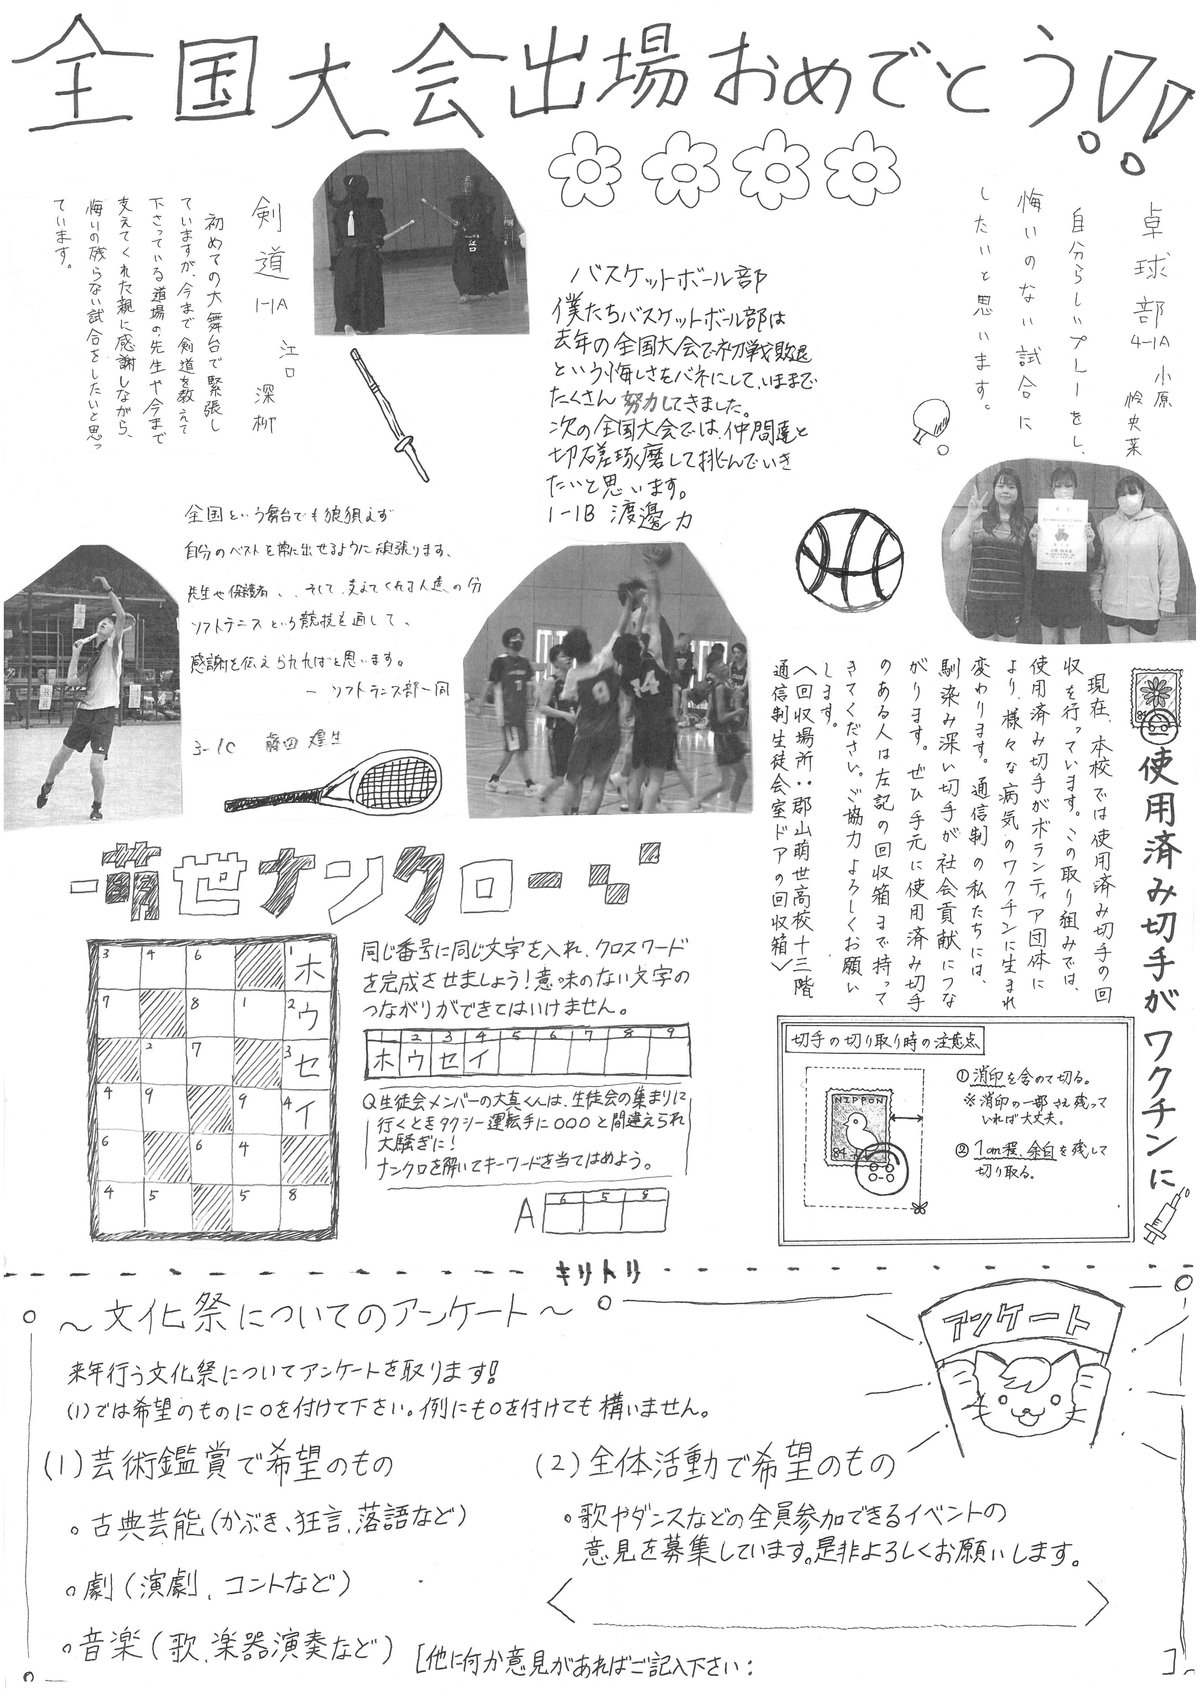 全国大会出場おめでとう!!
卓球部
4-1A 小原 怜央菜
自分らしいプレーをし、
悔いのない試合に
したいと思います。
バスケットボール部
僕たちバスケットボール部は
去年の全国大会で初戦敗退
という悔しさをバネにして、いままで
たくさん努力してきました。
次の全国大会では、仲間達と
切磋琢磨して挑んでいき
たいと思います。
1-1B 渡邊力
剣道
1-1A 江口 深柳
初めての大舞台で緊張し
ていますが、今まで剣道を教えて
下さっている道場の先生や今まで
支えてくれた親に感謝しながら、
悔いの残らない試合をしたいと思っ
ています。
全国という舞台でも狼狽えず
自分のベストを常に出せるように頑張ります、
先生や保護者、、そして、支えてくれる人達の分
ソフトテニスという競技を通して、
感謝を伝えられればと思います。
ー ソフトテニス部一同
3-1C 藤田 煌生
使用済み切手がワクチンに
84
現在、本校では使用済み切手の回
収を行っています。この取り組みでは、
使用済み切手がボランティア団体に
より、様々な病気のワクチンに生まれ
変わります。通信制の私たちには、
馴染み深い切手が社会貢献につな
がります。ぜひ手元に使用済み切手
のある人は左記の回収箱まで持って
きてください。ご協力よろしくお願い
します。
〈回収場所:郡山萌世高校十三階
通信制生徒会室ドアの回収箱〉
切手の切り取り時の注意点
NIPPON
84
①消印を含めて切る。
※消印の一部さえ残って
いれば大丈夫。
②1cm程、余白を残して
切り取る。
萌世ナンクロ
3 4 6 1ホ
7 8 1 2ウ
2 7 3セ
4 9 9 4イ
6 6 4
4 5 5 8
同じ番号に同じ文字を入れ、クロスワード
を完成させましょう!意味のない文字の
つながりができてはいけません。
1 2 3 4 5 6 7 8 9
ホ ウ セ イ
Q生徒会メンバーの大真くんは、生徒会の集まりに
行くときタクシー運転手に○○○と間違えられ
大騒ぎに!
ナンクロを解いてキーワードを当てはめよう。
A 6 5 8
キリトリ
～文化祭についてのアンケート～
アンケート
来年行う文化祭についてアンケートを取ります!
(1)では希望のものに○を付けて下さい。例にも○を付けても構いません。
(1)芸術鑑賞で希望のもの
。古典芸能(かぶき、狂言、落語など)
。劇(演劇、コントなど)
。音楽(歌、楽器演奏など)
(2)全体活動で希望のもの
。歌やダンスなどの全員参加できるイベントの
意見を募集しています。是非よろしくお願いします。
[他に何か意見があればご記入下さい: ]